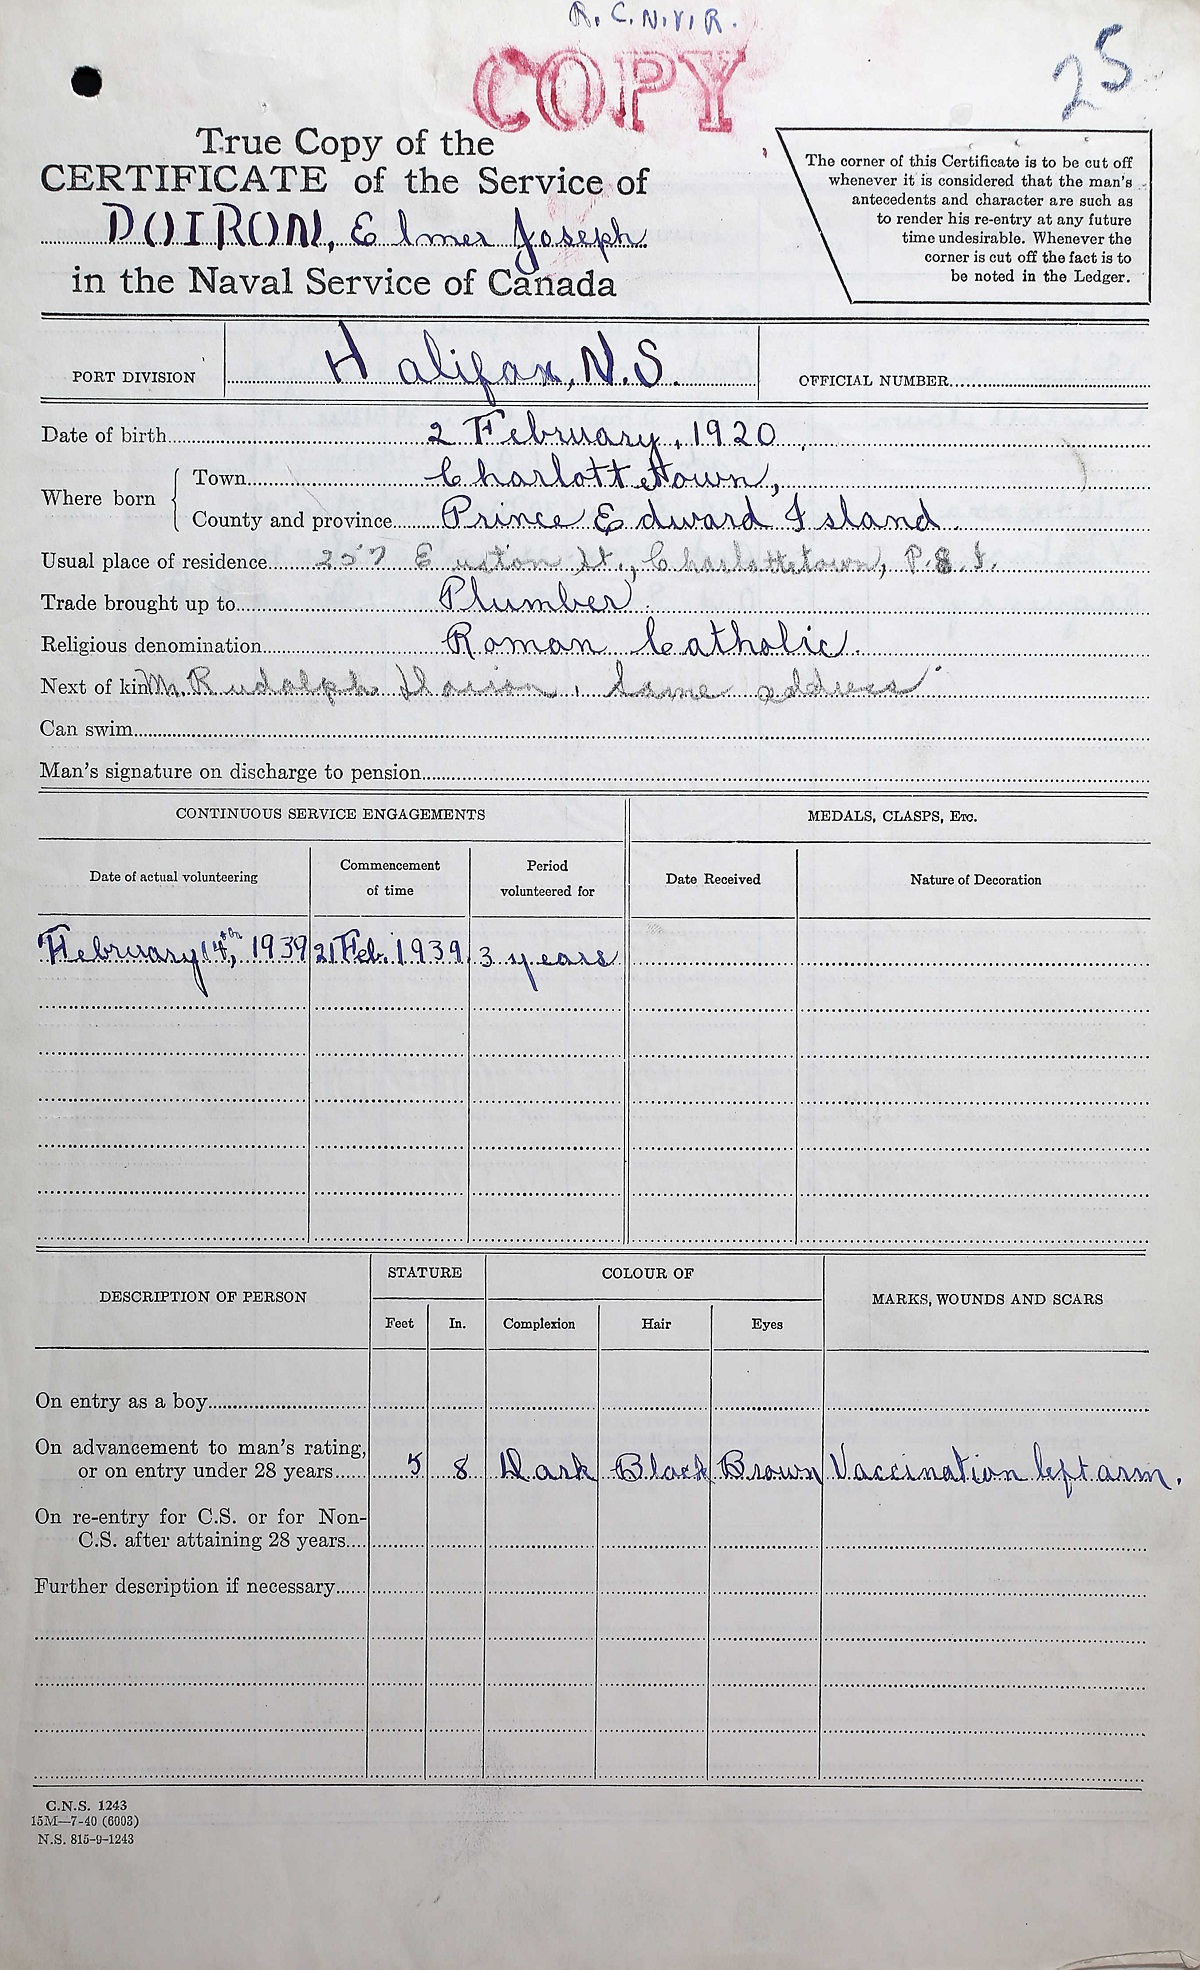 R.C.N.V.R.
COPY
25
True Copy of the
CERTIFICATE of the Service of
DOIRON, Elmer Joseph
in the Naval Service of Canada
The corner of this Certificate is to be cut off
whenever it is considered that the man's
antecedents and character are such as
to render his re-entry at any future
time undesirable. Whenever the
corner is cut off the fact is to
be noted in the Ledger.
PORT DIVISION Halifax, N.S. OFFICIAL NUMBER
Date of birth 2 February, 1920
Where born
Town Charlottetown,
County and province Prince Edward Island.
Usual place of residence 257 Euston St., Charlottetown, P.E.I.
Trade brought up to Plumber.
Religious denomination Roman Catholic.
Next of kin Rudolph Doiron, same address
Can swim
Man's signature on discharge to pension
CONTINUOUS SERVICE ENGAGEMENTS MEDALS, CLASPS, Etc.
Date of actual volunteering Commencement of time Period volunteered for Date Received Nature of Decoration
February 14th, 1939 21 Feb. 1939 3 years
DESCRIPTION OF PERSON STATURE COLOUR OF MARKS, WOUNDS AND SCARS
Feet In. Complexion Hair Eyes
On entry as a boy
On advancement to man's rating,
or on entry under 28 years 5 8 Dark Black Brown Vaccination left arm.
On re-entry for C.S. or for Non-
C.S. after attaining 28 years
Further description if necessary
C.N.S. 1243
15M—7-40 (6003)
N.S. 815-9-1243